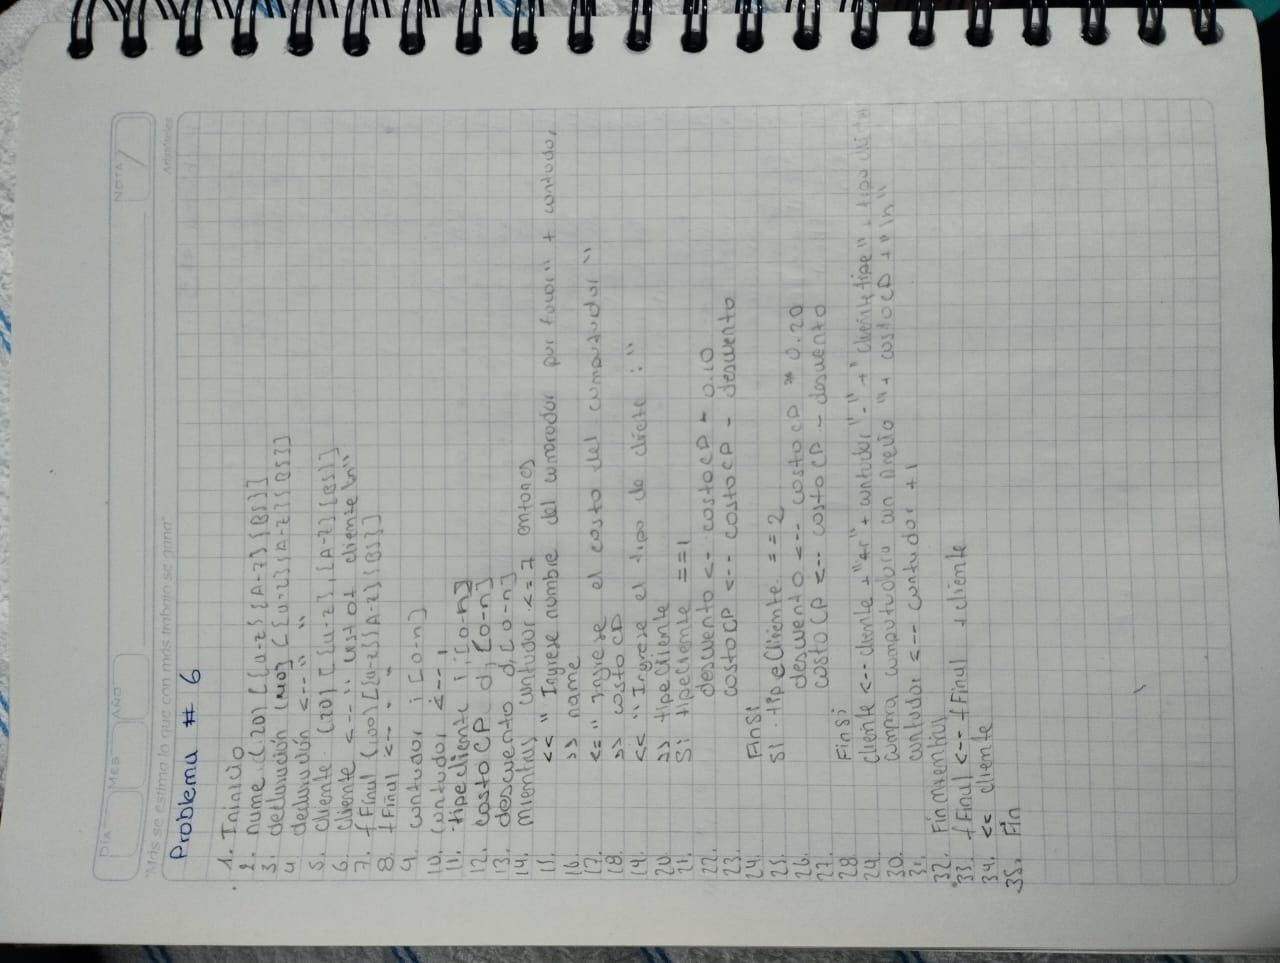 DÍA MES AÑO NOTA
"Más se estima lo que con más trabajo se gana"
Problema # 6
1. Inicio
2. name (20) [{a-z}{A-Z}{BS}]
3. declaración (200) [{a-z}{A-Z}{BS}]
4 declaración <--- " "
5. cliente (20) [{a-z},{A-Z}{BS}]
6. cliente <--- " Lista de cliente \n"
7. fFinal (200) [{a-z}{A-Z}{BS}]
8. fFinal <-- " "
9. contador i [0-n]
10. contador <--- 1
11. tipecliente i [0-n]
12. costoCP d, [0-n]
13. descuento d, [0-n]
14. mientras contador <= 7 entonces
15. << " Ingrese nombre del comprador por favor" + contador,
16. >> name
17. << " Ingrese el costo del computador "
18. >> costo CD
19. << " Ingrese el tipo de cliete : "
20. >> tipeCliente
21. Si tipeCliente ==1
22. descuento <-- costoCD * 0.10
23. costoCP <--- costoCP - descuento
24. FinSi
25. Si tipeCliente == 2
26. descuento <--- costo CP * 0.20
27. costo CP <-- costo CP - descuento
28. FinSi
29. cliente <--- cliente + "#" + contador "-" + " cliente tipe" + tipo
30. compra computadora con precio " + costo CD + "\n"
31. contador <--- contador + 1
32. FinMientras
33. fFinal <-- fFinal + cliente
34. << cliente
35. Fin